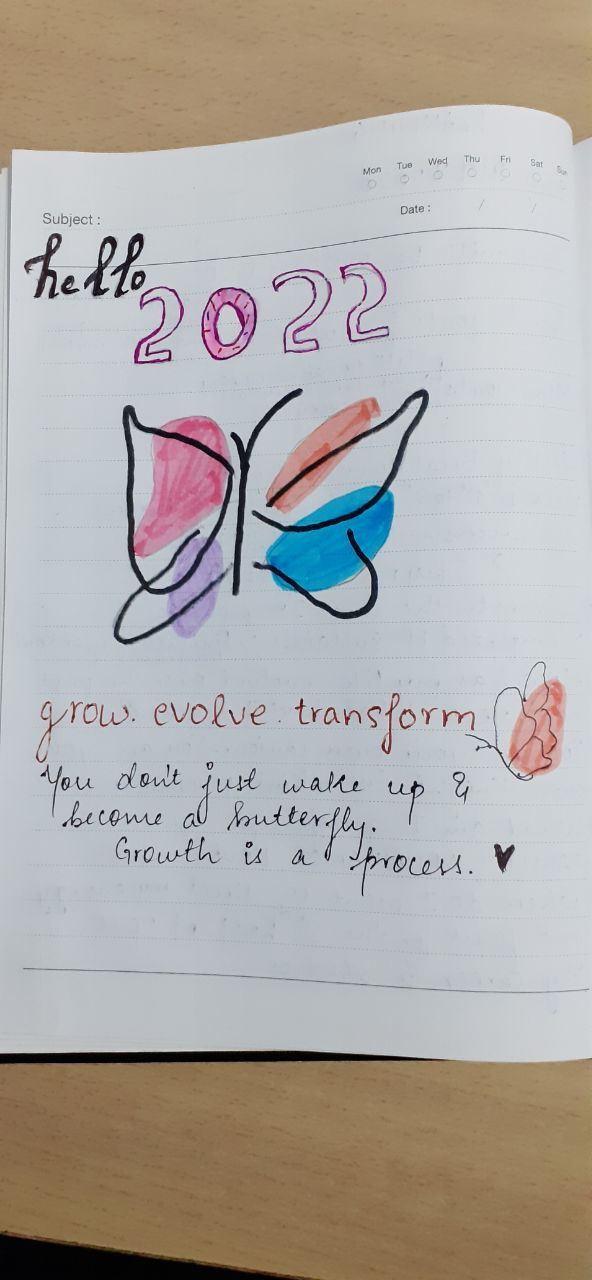 Mon Tue Wed Thu Fri Sat Sun
Subject :
Date : / /
hello
2022
grow. evolve. transform
You don't just wake up &
become a butterfly.
Growth is a process. ♥